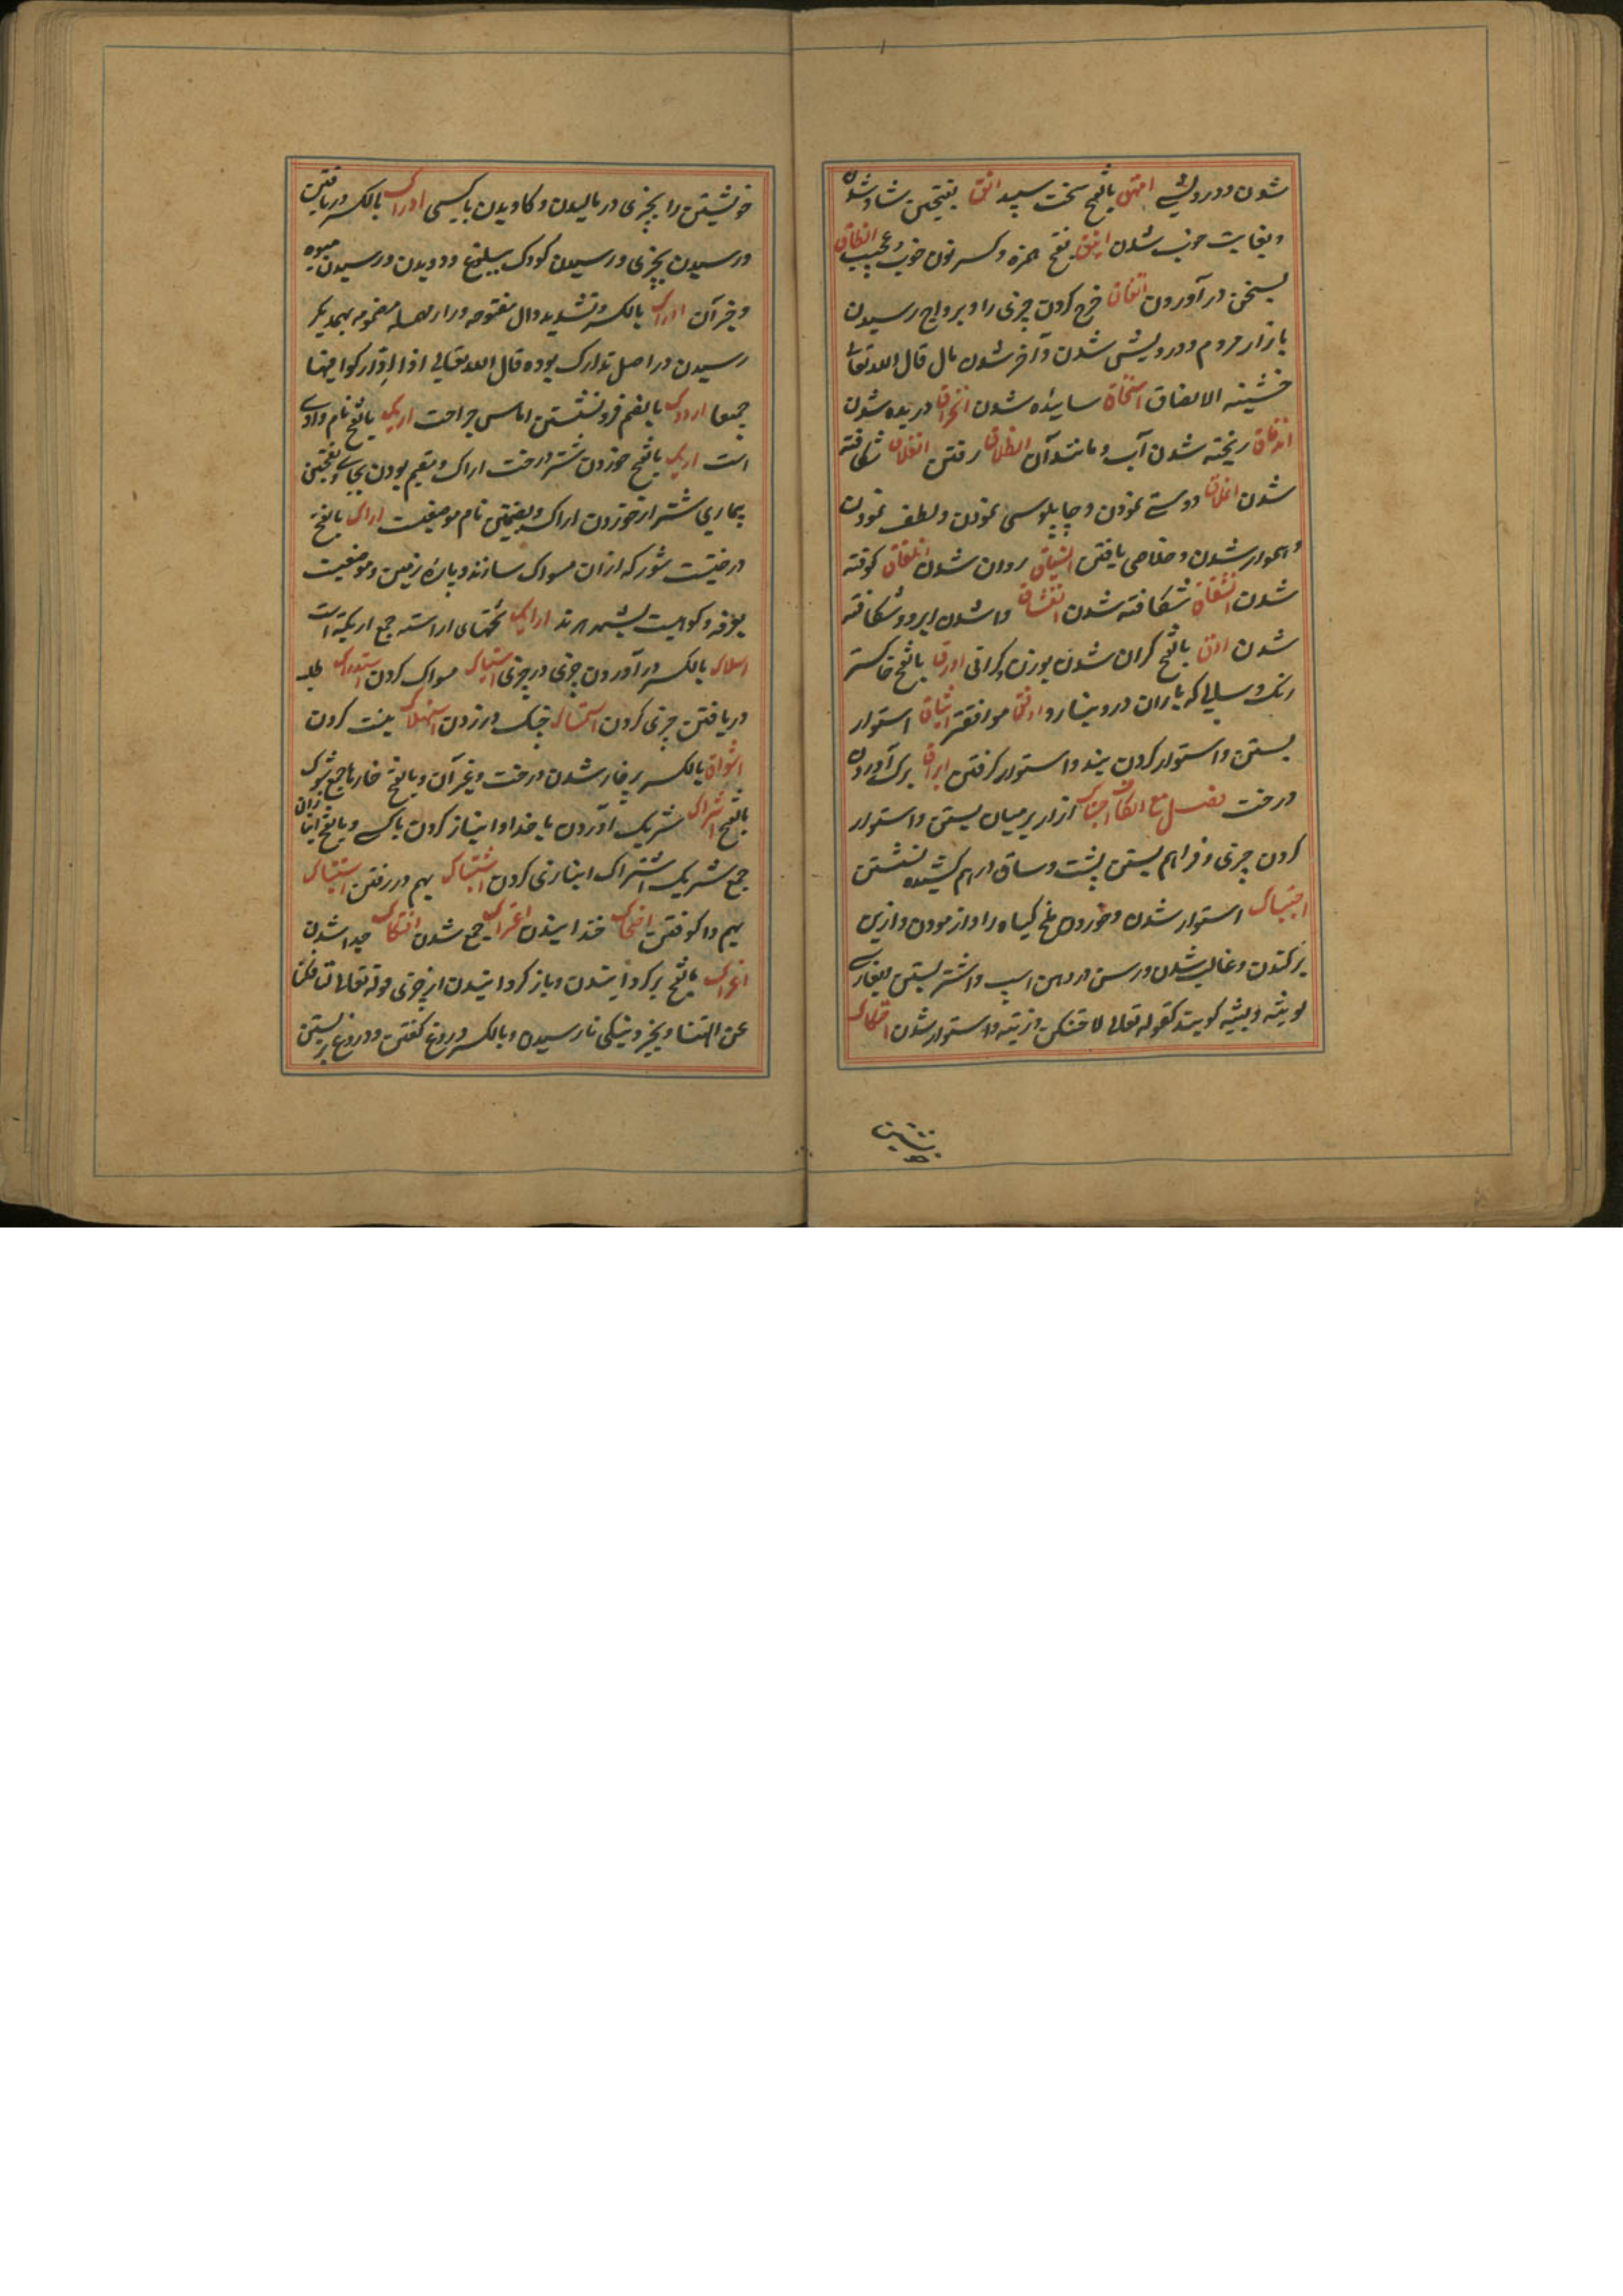 شدن و درویشی امهق بالفتح سخت سپید انق بفتحتین شاد شدن
و بغایت خوب شدن انیق بفتح همزه و کسر نون خوب و عجیب انطاق
بسخن در آوردن انفاق خرج کردن چیزی را و برواج رسیدن
بازار مردم و درویش شدن و آخر شدن مال قال الله تعالی
خشیة الانفاق انسحاق ساییده شدن انخراق دریده شدن
اندفاق ریخته شدن آب و مانند آن انطلاق رفتن انفلاق شکافته
شدن املاق دوستی نمودن و چاپلوسی نمودن و لطف نمودن
و هموار شدن و خلاصی یافتن انسیاق روان شدن کوفته
شدن انشقاق شکافته شدن واشدن ابر و شکافته
شدن اوق بالفتح گران شدن بوزن و گرانی اورق بالفتح خاکستر
رنگ و سالی که باران درو نبارد اوفق موافقتر ایثاق استوار
بستن و استوار کردن بند و استوار گرفتن ایراق برگ آوردن
درخت فصل مع الکاف احتباک ازار بر میان بستن و استوار
کردن چیزی و فراهم بستن پشت و ساق درهم کشیده نشستن
احتناک استوار شدن و خوردن ملخ گیاه را و ازمودن و از بن
برکندن و غالب شدن و رسن در دهن اسپ و اشتر بستن بپفارسی
لویشه و بیشه گویند کقوله تعالی لاحتنکن ذریته و استوار شدن احتکاک
خویشتن را بچیزی در مالیدن و کاویدن با کسی ادراک بالکسر دریافتن
و رسیدن بچیزی و رسیدن کودک ببلوغ و دویدن و رسیدن میوه
و جز آن ادّارک بالکسر و تشدید دال مفتوحه و راء مهمله مضمومه بهمدیگر
رسیدن در اصل تدارک بوده قال الله تعالی اذا ادّارکوا فیها
جمیعا اروک بالضم فرو نشستن اماس جراحت اریک بالفتح نام وادی
است ارک بالفتح خوردن شتر درخت اراک و مقیم بودن بجای و بفتحتین
بیماری شتر از خوردن اراک و بضمتین نام موضعیست اراک بالفتح
درختیست شور که ازان مسواک سازند و پاره زمین و موضعیست
بعرفه و کوهیست ارایک تختهای اراسته جمع اریکه است
اسلاک بالکسر در آوردن چیزی در چیزی استیاک مسواک کردن استدراک طلب
دریافتن چیزی کردن استمساک چنگ در زدن استهلاک نیست کردن
اشواک بالکسر پر خار شدن درخت و غیر آن و بالفتح خارها جمع شوک
بالفتح اشراک شریک آوردن با خدا و انباز کردن با کسی و بالفتح انبازان
جمع شریک اشتراک انبازی کردن اشتباک بهم در رفتن
بهم وا کوفتن اضحاک خندانیدن اعتراک جمع شدن انفکاک جدا شدن
افک بالفتح برگردانیدن و باز گردانیدن از چیزی قوله تعالی لتافکنا
عن الهتنا و بچیز و نیکی نارسیدن و بالکسر دروغ گفتن و دروغ بربستن